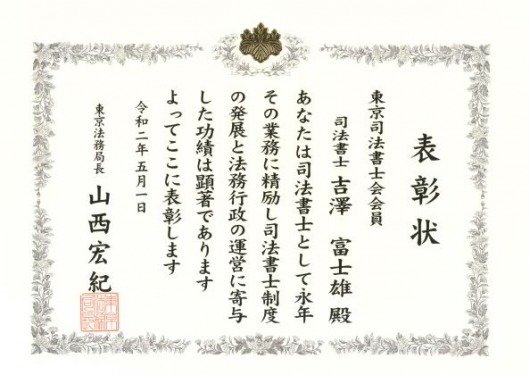 表彰状
東京司法書士会会員
司法書士 吉澤 富士雄 殿
あなたは司法書士として永年
その業務に精励し司法書士制度
の発展と法務行政の運営に寄与
した功績は顕著であります
よってここに表彰します
令和二年五月一日
東京法務局長 山西宏紀